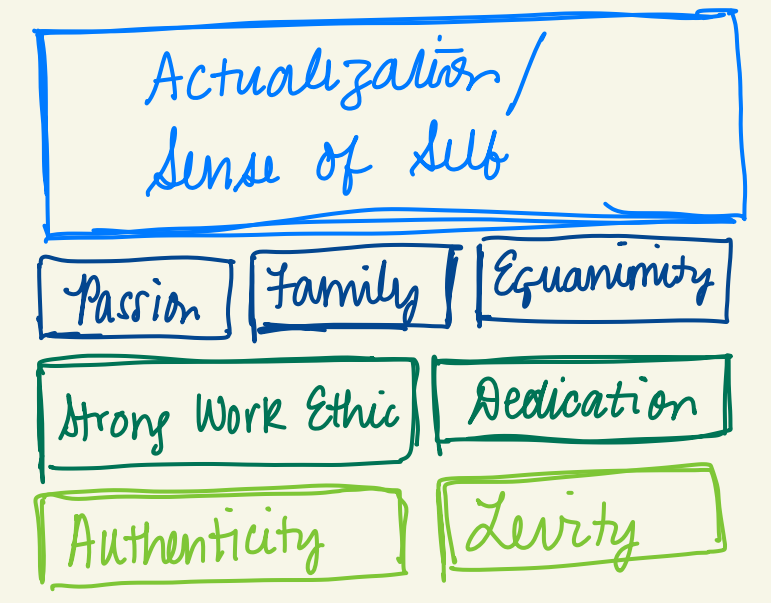 Actualization/
Sense of Self
Passion Family Equanimity
Strong Work Ethic Dedication
Authenticity Levity